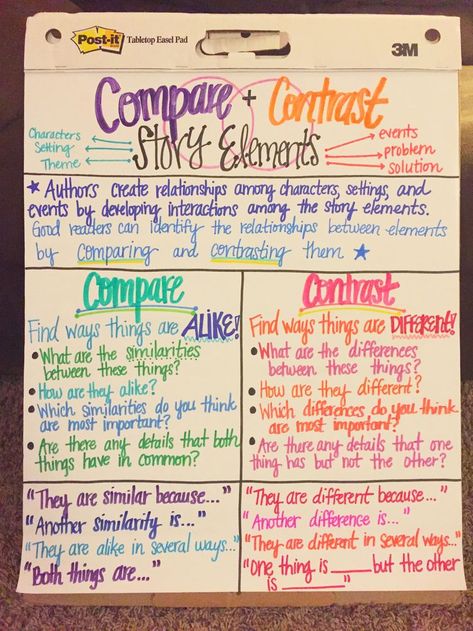 Post-it Tabletop Easel Pad 3M
Compare + Contrast
Story Elements
Characters
Setting
Theme
events
problem
solution
★ Authors create relationships among characters, settings, and
events by developing interactions among the story elements.
Good readers can identify the relationships between elements
by comparing and contrasting them ★
Compare
Find ways things are ALIKE!
• What are the similarities
between these things?
• How are they alike?
• Which similarities do you think
are most important?
• Are there any details that both
things have in common?
Contrast
Find ways things are DIFFERENT!
• What are the differences
between these things?
• How are they different?
• Which differences do you think
are most important?
• Are there any details that one
thing has but not the other?
"They are similar because..."
"Another similarity is..."
"They are alike in several ways..."
"Both things are..."
"They are different because..."
"Another difference is..."
"They are different in several ways..."
"One thing is _____ but the other
is _______"